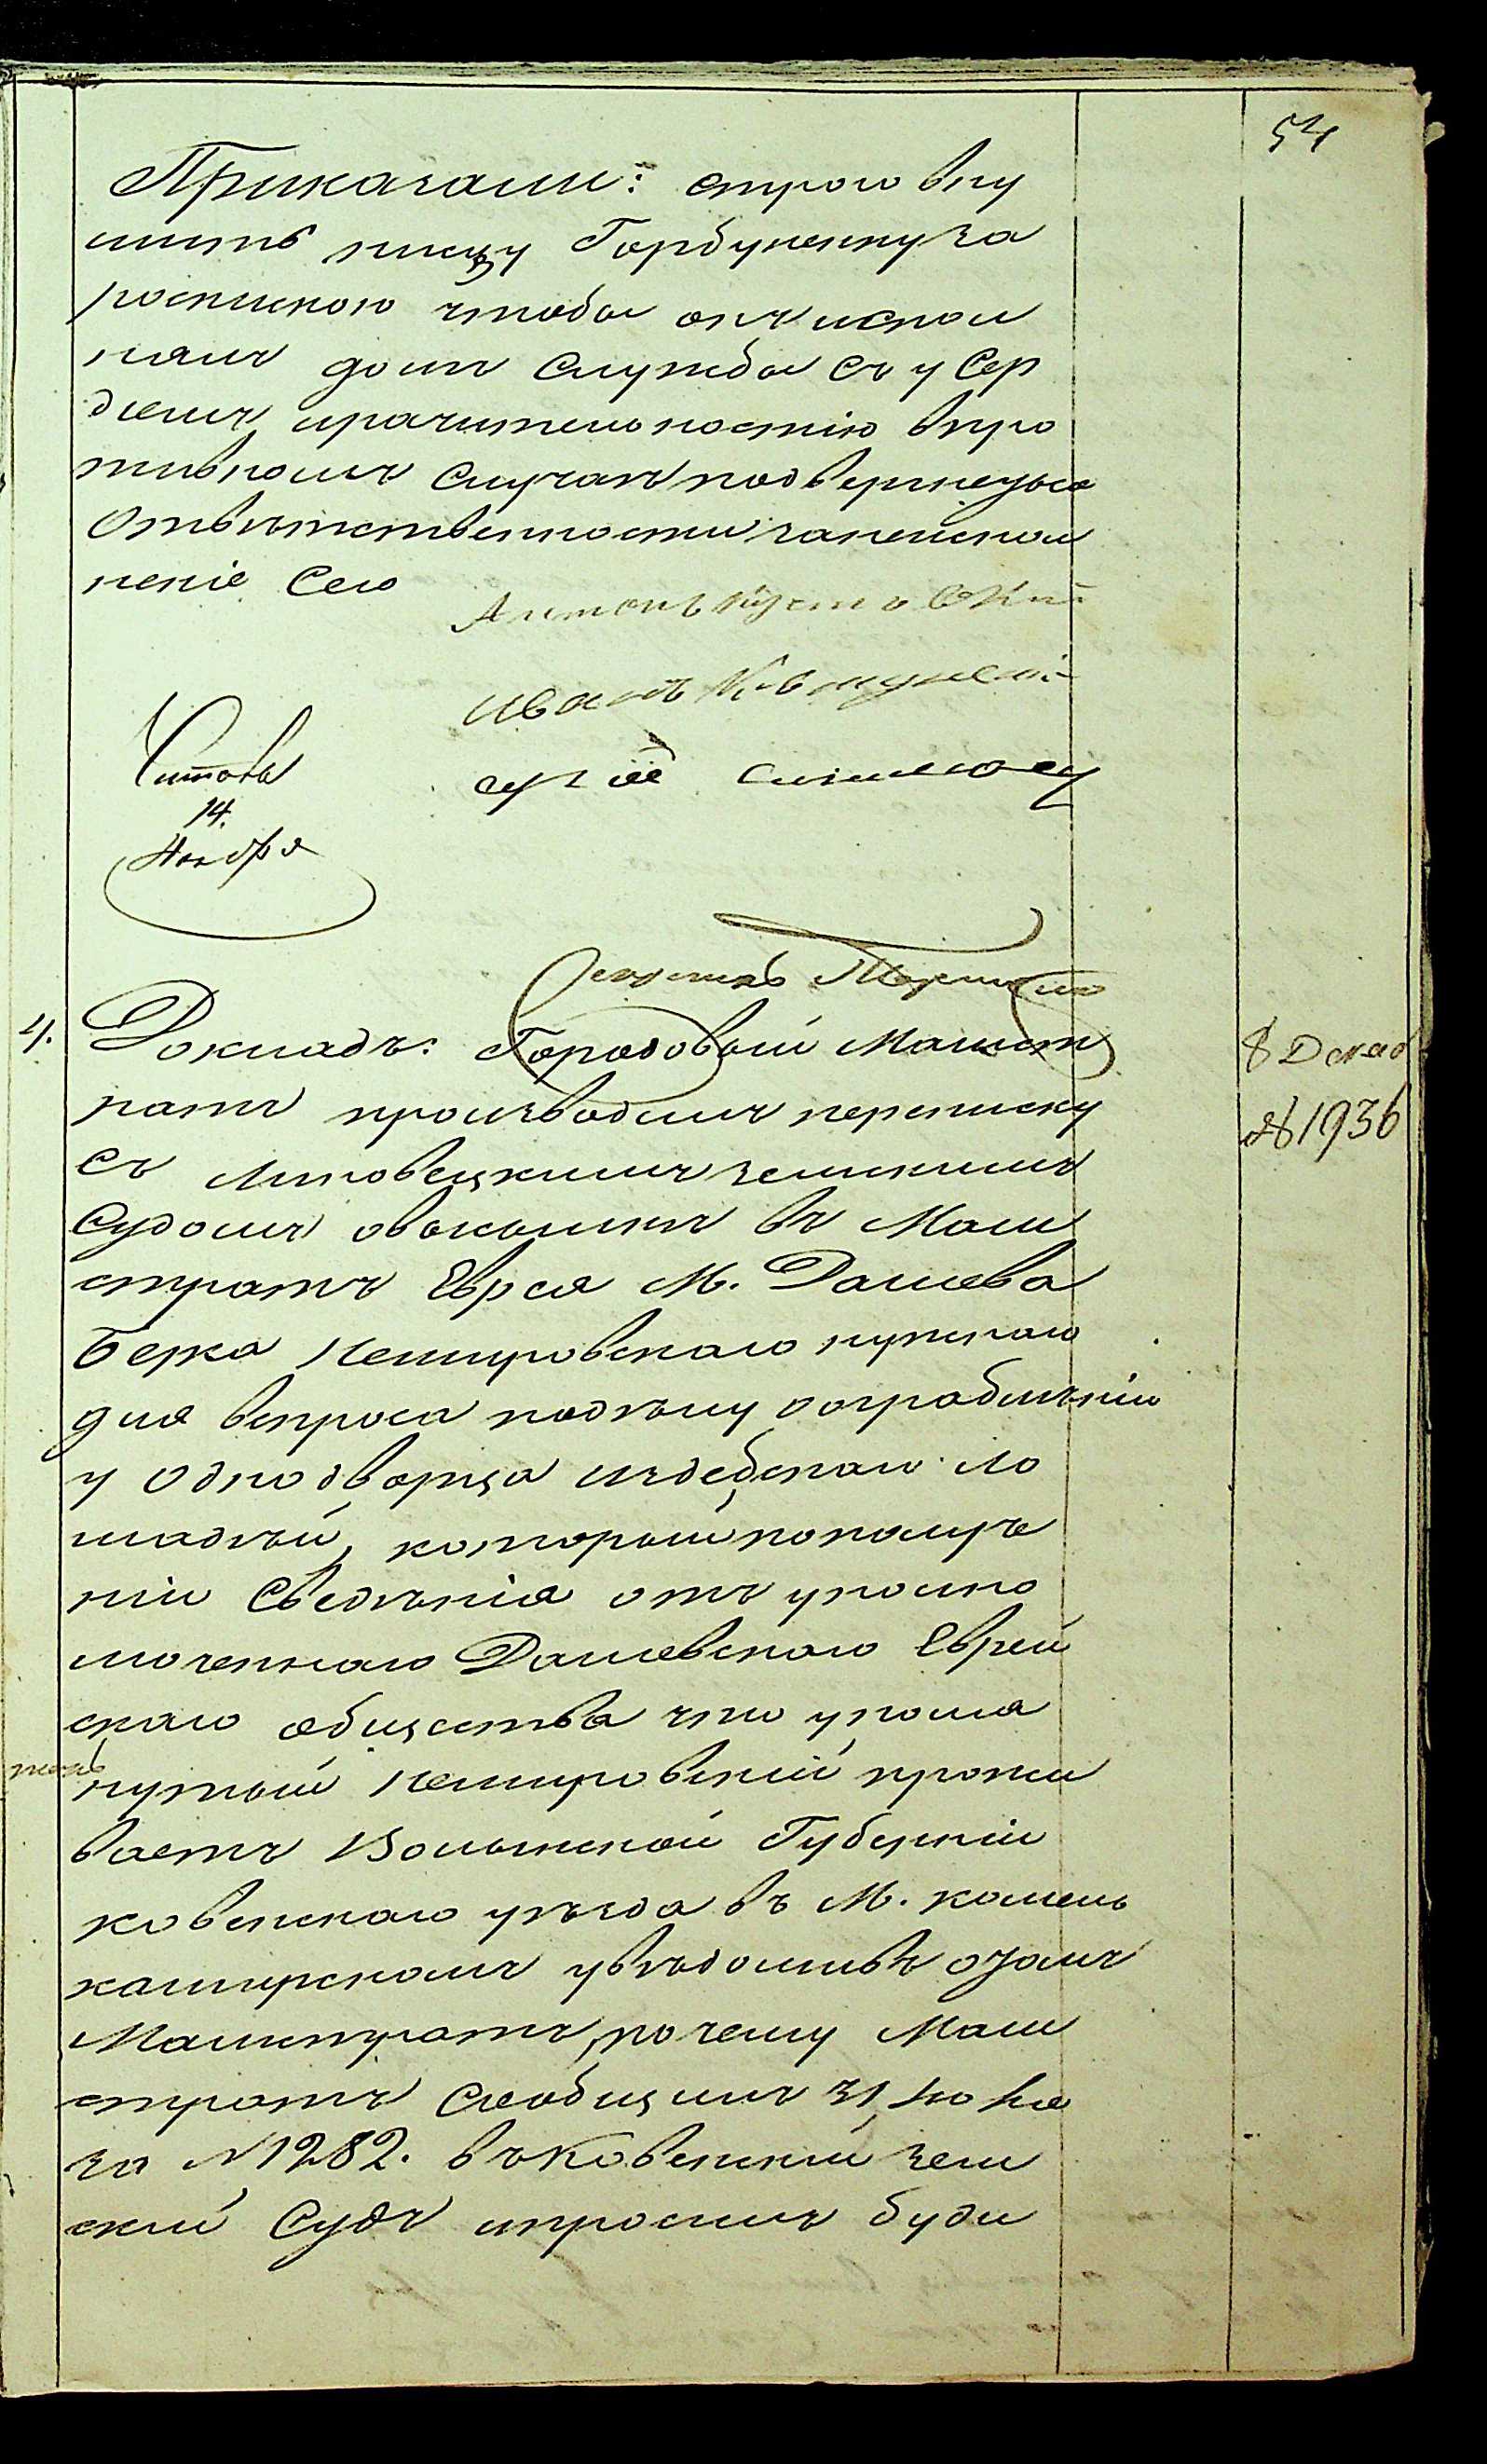 54
Приказали: строго вну
шить писцу Горбуненку за
роспискою чтобы онъ испол
нялъ долгъ службы съ усер
діемъ, и рачительностію впро
тивномъ случаѣ подвергнется
Отвѣтственности занеиспол
неніе Сего
Антонъ
Иванъ
Читалъ
14.
Ноября
Секретарь
4.
Докладъ: Городовый Магист
ратъ производилъ переписку
съ Липовецкимъ земскимъ
Судомъ овысылкѣ въ Маги
стратъ Еврея М. Дашева
Берка Немировскаго нужнаго
для вспроса подѣлу ограбленіи
у Однодворца лo
шадей, который пополуче
ніи Сведѣнія отъ уполно
моченнаго Дашевскаго Еврей
скаго общества что упомя
нутый Немировскій прожи
ваетъ Волынской Губерніи
ковенскаго уѣзда въ М. камень
каширскомъ увѣдомивъ отомъ
Магистратъ, почему Маги
стратъ Сообщилъ 31 Іюля
за №1282. въ Ковенскій зем
скій Судъ ипросилъ буди
8 Декаб
№1936